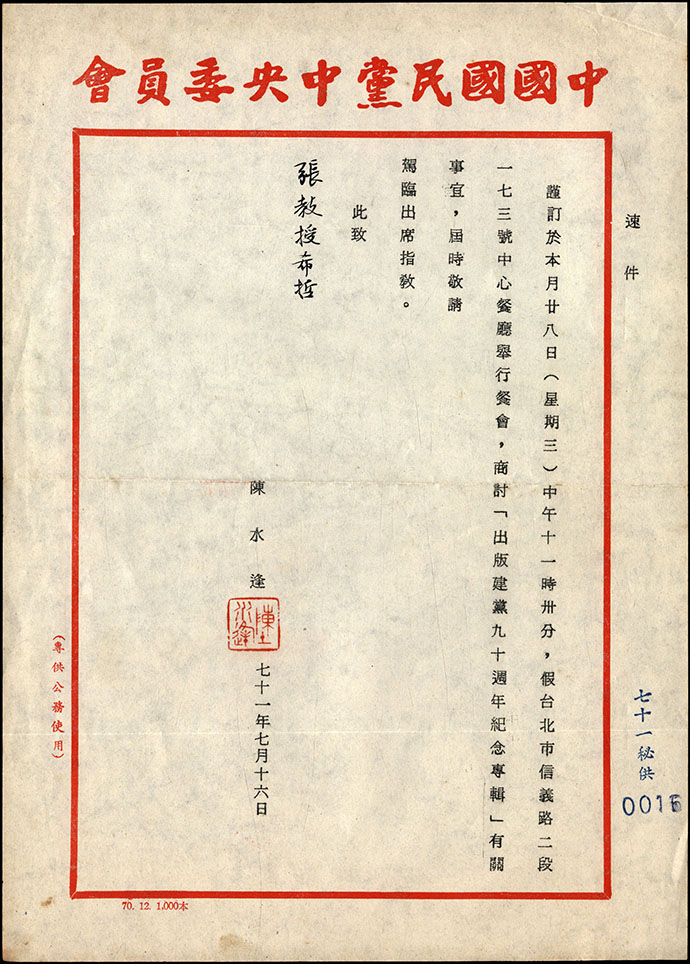 中國國民黨中央委員會
速件
謹訂於本月廿八日（星期三）中午十一時卅分，假台北市信義路二段
一七三號中心餐廳舉行餐會，商討「出版建黨九十週年紀念專輯」有關
事宜，屆時敬請
駕臨出席指教。
此致
張教授希哲
陳水逢
陳水逢
七十一年七月十六日
（專供公務使用）
七十一秘供
70. 12. 1,000本